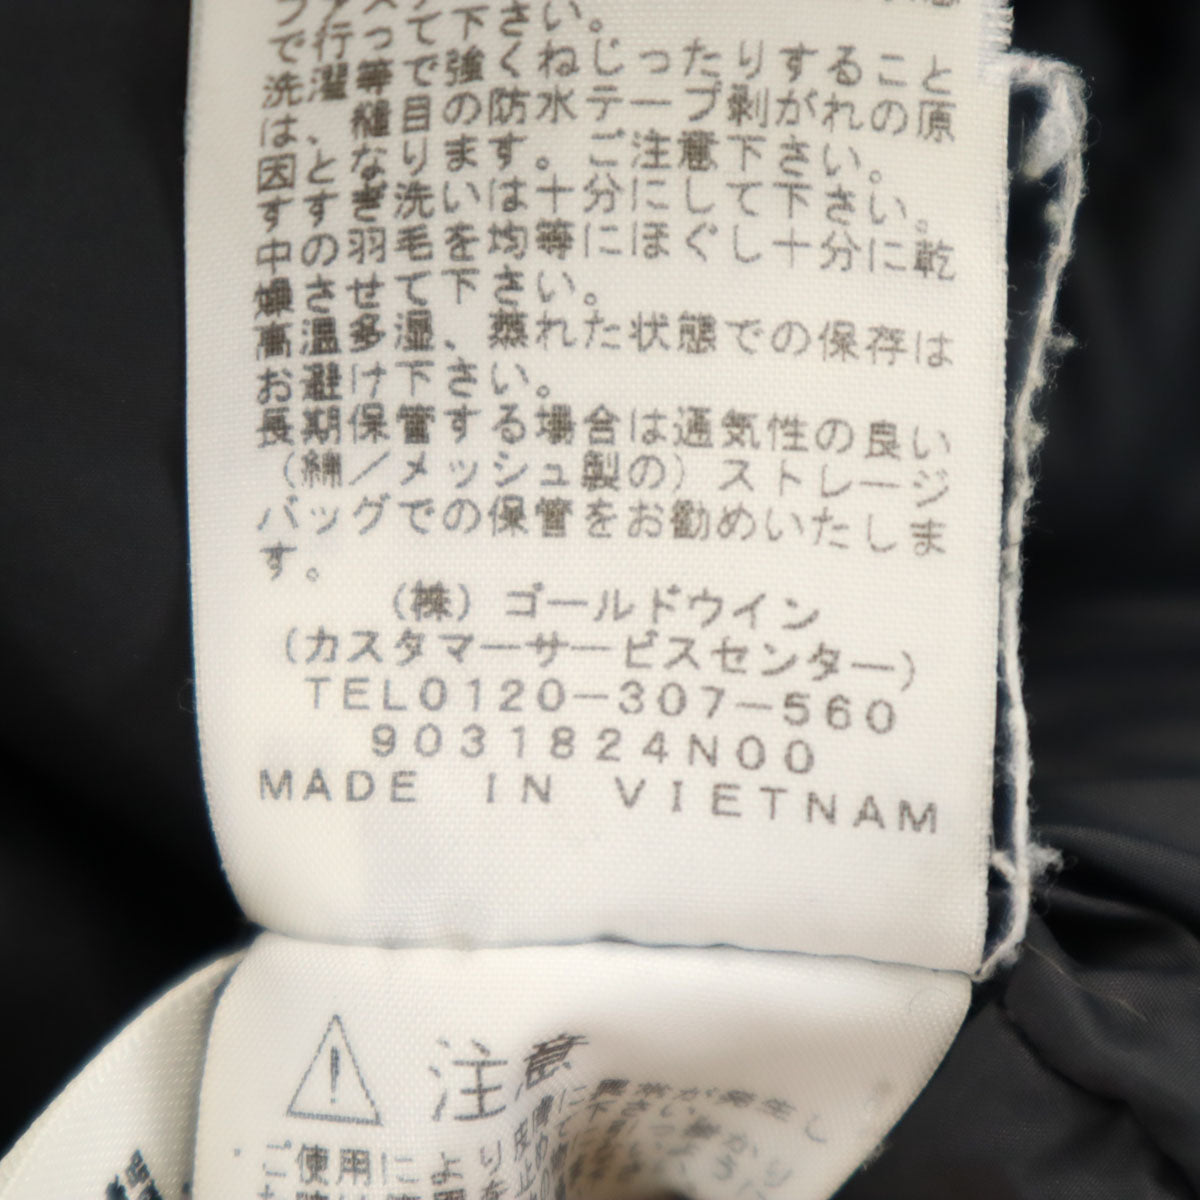 て下さい。
洗濯等で強くねじったりすること
は、縫目の防水テープ剥がれの原
因となります。ご注意下さい。
すすぎ洗いは十分にして下さい。
中の羽毛を均等にほぐし十分に乾
燥させて下さい。
高温多湿、蒸れた状態での保存は
お避け下さい。
長期保管する場合は通気性の良い
(綿/メッシュ製の)ストレージ
バッグでの保管をお勧めいたしま
す。
(株)ゴールドウイン
(カスタマーサービスセンター)
TEL0120-307-560
9031824N00
MADE IN VIETNAM
注意
ご使用により